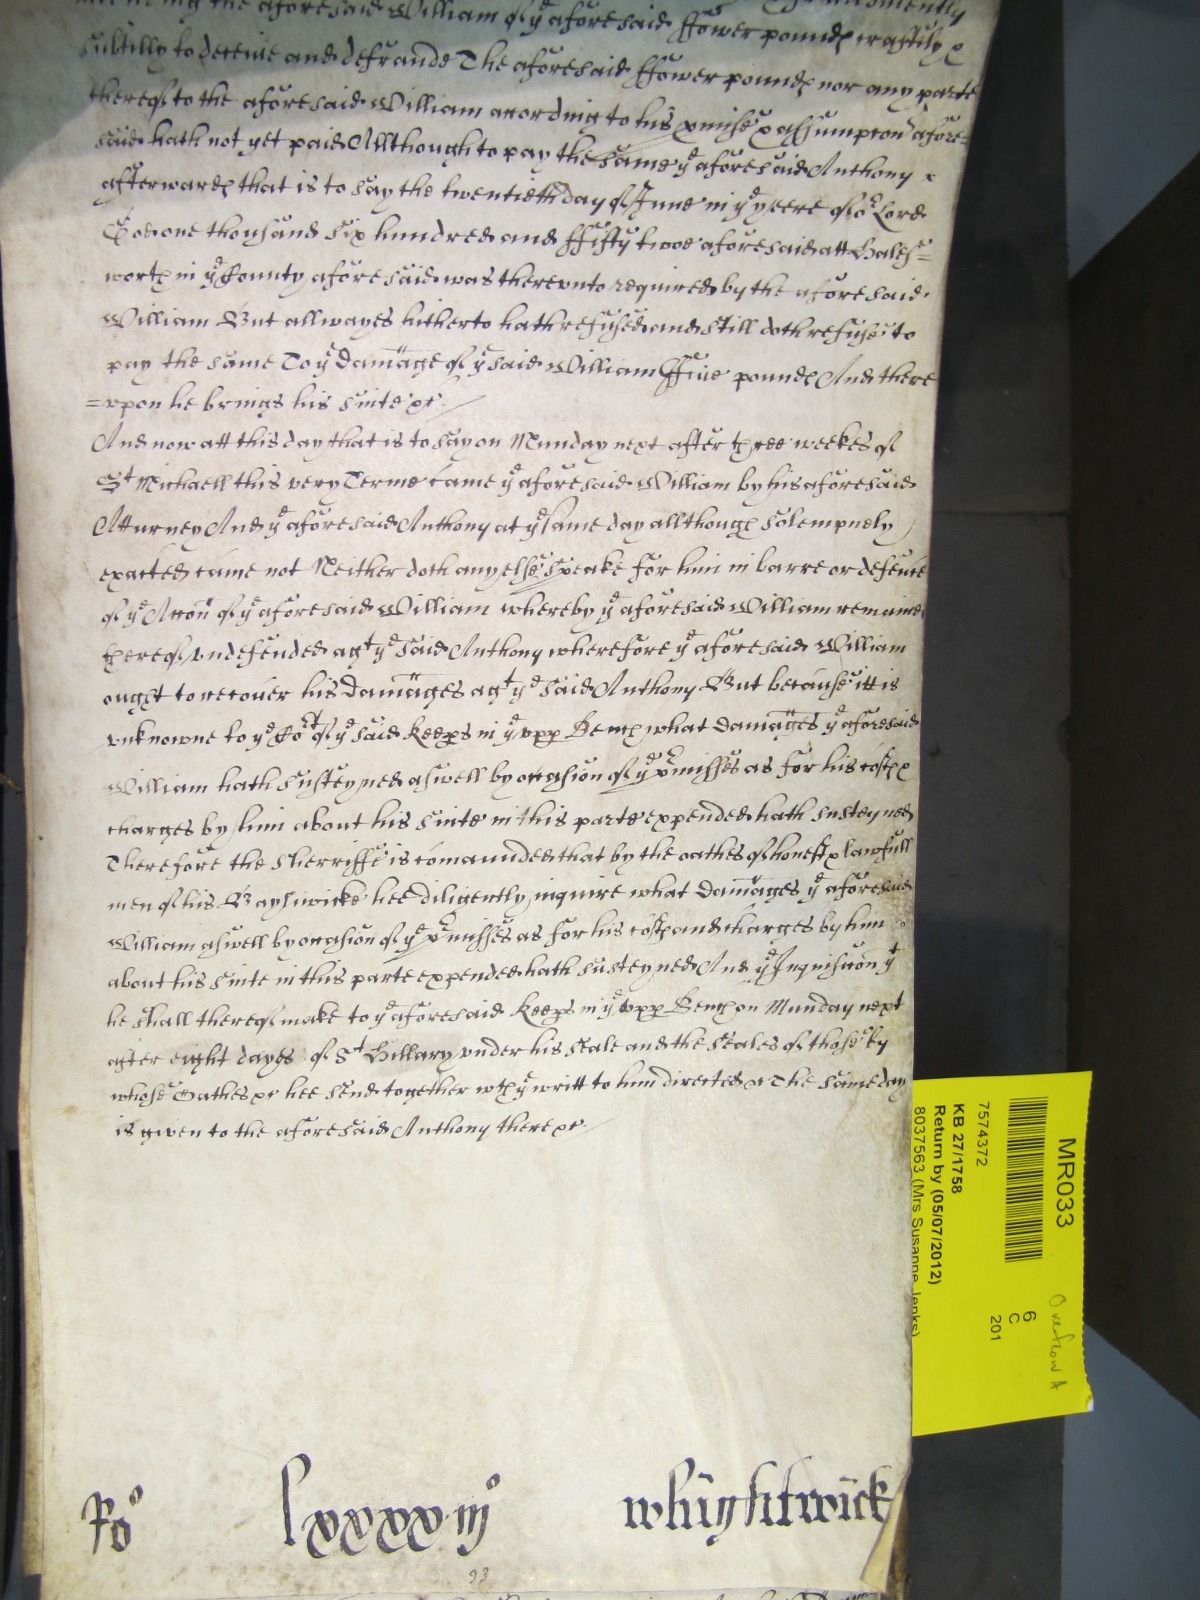 the aforesaid William of ye aforesaid ffower pounds craftily &
subtilly to deceive and defraude The aforesaid ffower pounds nor any parte
thereof to the aforesaid William according to his pmise & assumpcon afore=
said hath not yet paid Allthough to pay the same ye aforesaid Anthony
afterwards that is to say the twentieth day of June in ye yeere of or Lord
God one thousand six hundred and ffifty twoe aforesaid att Hales=
worth in ye County aforesaid was therevnto required by the aforesaid
William But allwayes hitherto hath refused and still doth refuse to
pay the same To ye damage of ye said William ffive pounds And there
=vpon he brings his suite &c
And now att this day that is to say on Munday next after three weekes of
St Michaell this very Terme came ye aforesaid William by his aforesaid
Atturney And ye aforesaid Anthony at ye same day allthough solempnely
exacted came not Neither doth any else speake for him in barre or defence
of ye Accon of ye aforesaid William whereby ye aforesaid William remaines
thereof vndefended agt ye said Anthony wherefore ye aforesaid William
ought to recouer his damages agt ye said Anthony But because itt is
vnknowne to ye Cort of ye said Keeps in ye vpp Bench what damages ye aforesaid
William hath susteyned aswell by occasion of ye pmisses as for his costs &
charges by him about his suite in this parte expended hath susteyned
Therefore the Sherriffe is comaunded that by the oathes of honest & lawfull
men of his Baysiwicke hee diligently inquire what damages ye aforesaid
William aswell by occasion of ye pmisses as for his costs and charges by him
about his suite in this parte expended hath susteyned And ye Inquisicon yt
he shall thereof make to ye aforesaid Keeps in ye vpp Bench on Munday next
after eight dayes of St Hillary vnder his seale and the seales of those by
whose Oathes &c hee send together wth ye writt to him directed &c The same day
is given to the aforesaid Anthony there &c
Ro lxxxxiijo whijtchwick
93
MR033
7574372
KB 27/1758
Return by (05/07/2012)
8037563 (Mrs Susanne Jenks)
6
C
201
Overflow A